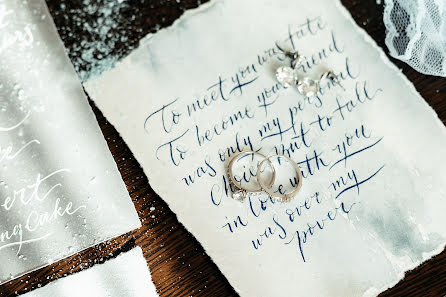 To meet you was fate
To become your friend
was only my personal
Choice But to fall
in love with you
was over my
power
Cake